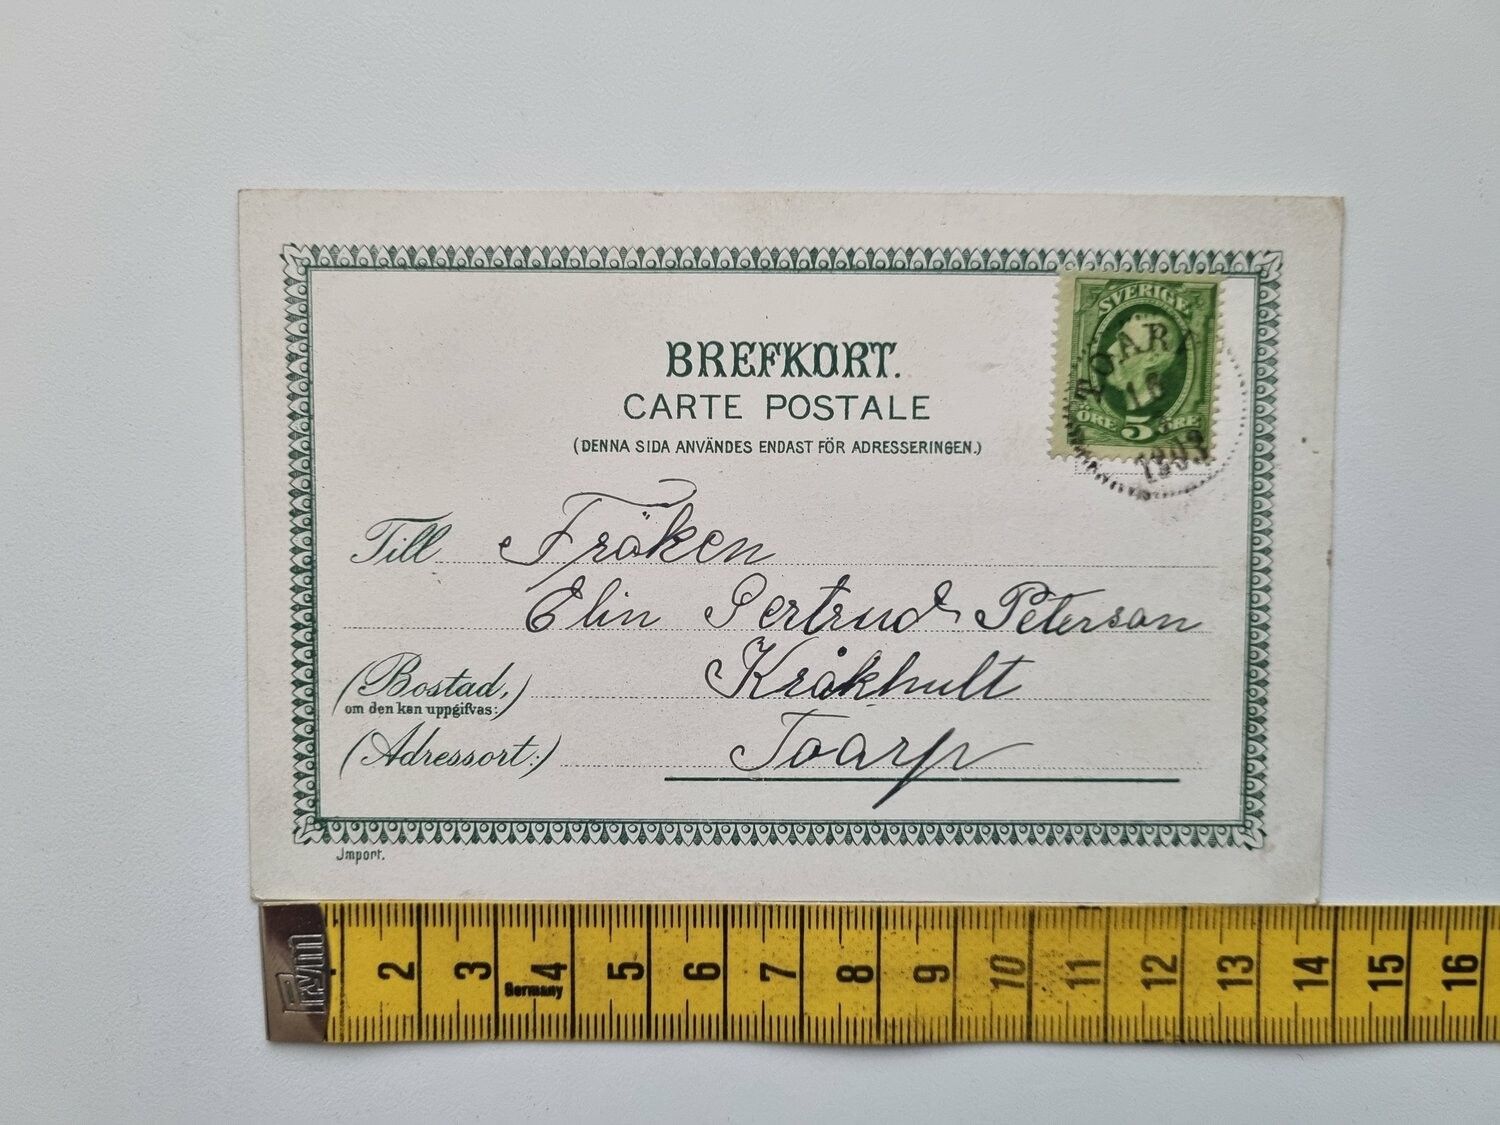 BREFKORT.
CARTE POSTALE
(DENNA SIDA ANVÄNDES ENDAST FÖR ADRESSERINGEN.)
SVERIGE
TOARP
16
1903
ÖRE 5 ÖRE
Till Fröken
Elin Gertrud Peterson
(Bostad,) Kråkhult
om den kan uppgifvas:
(Adressort:) Toarp
Import.
Prym
2 3 4 5 6 7 8 9 10 11 12 13 14 15 16
Germany